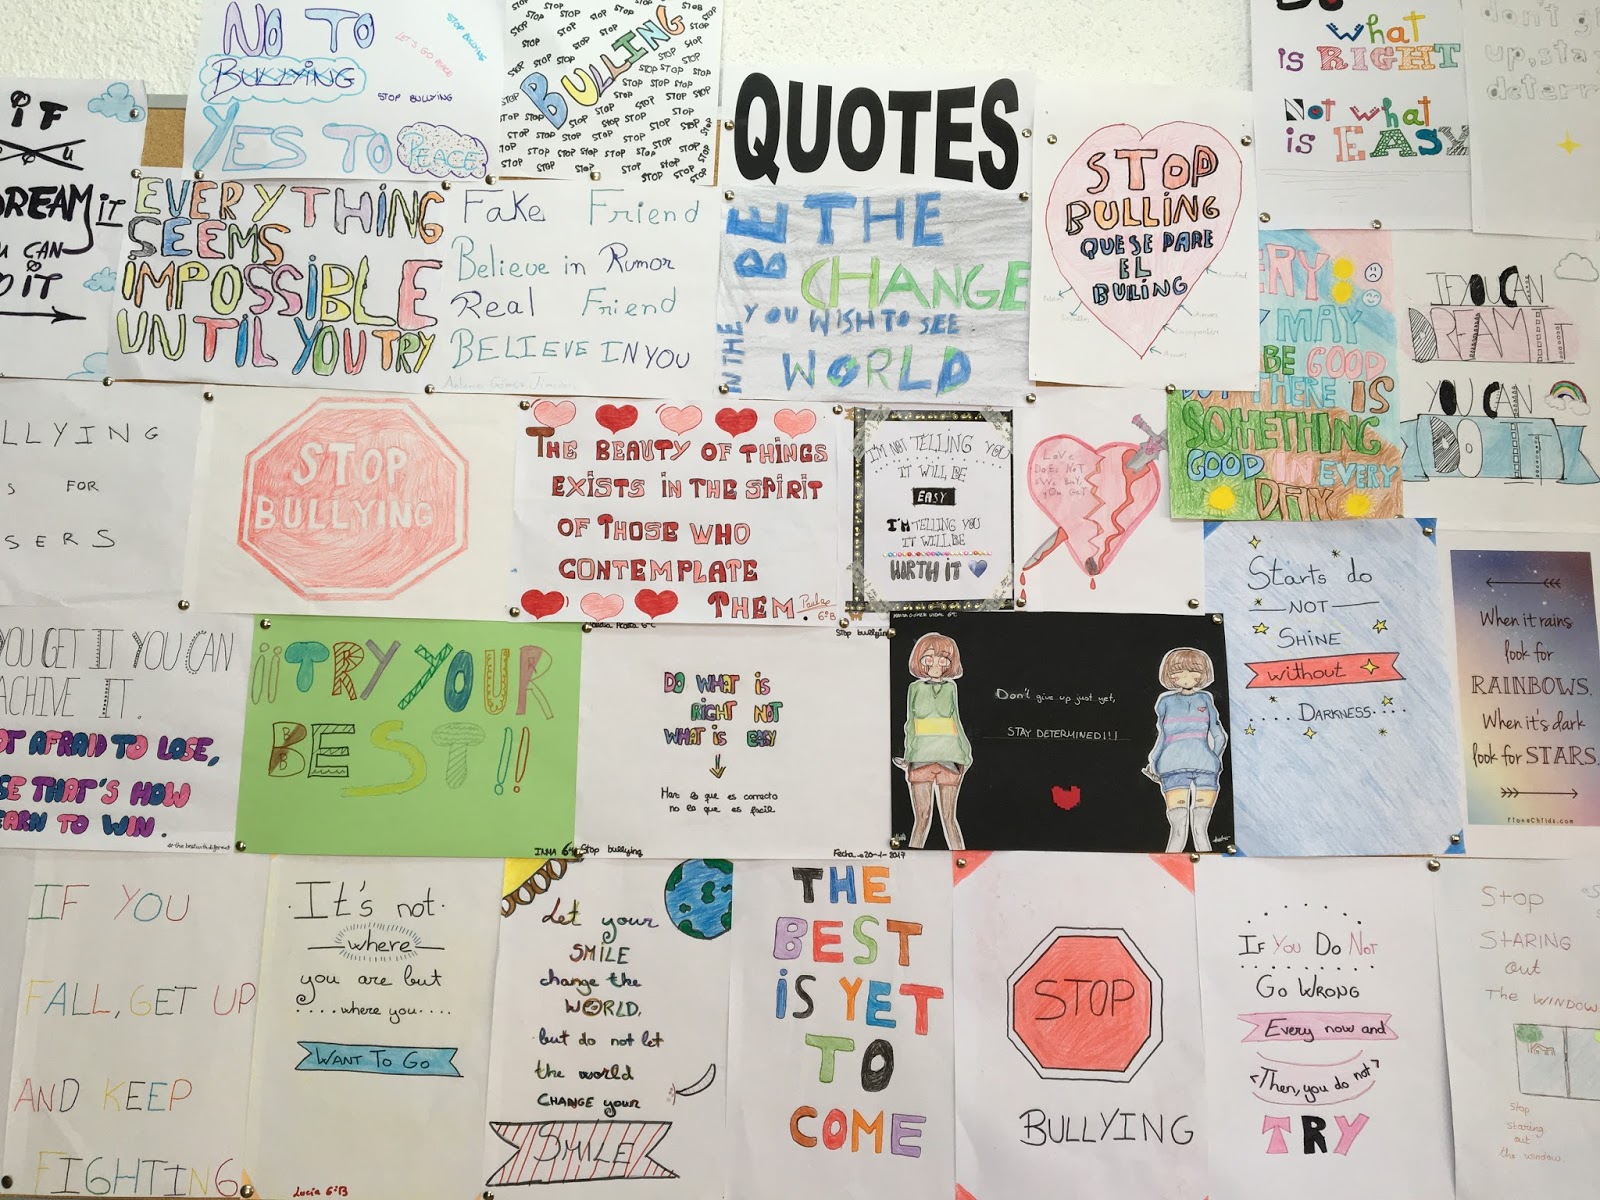 NO TO
BULLYING
YES TO PEACE
STOP BULLYING
LET'S GO PEACE
STOP BULLYING
STOP
BULLING
QUOTES
STOP
BULLING
QUE SE PARE
EL
BULLING
what
is RIGHT
Not what
is EASY
don't g
up, sta
determ
iF
DREAM iT
U CAN
O iT
EVERYTHING
SEEMS
IMPOSSIBLE
UNTIL YOU TRY
Fake Friend
Believe in Rumor
Real Friend
BELIEVE IN YOU
BE THE
CHANGE
YOU WISH TO SEE
IN THE
WORLD
ERY
Y MAY
BE GOOD
BUT THERE IS
SOMETHING
GOOD IN EVERY
DAY
IF YOU CAN
DREAM IT
YOU CAN
DO IT
LLYING
S FOR
SERS
STOP
BULLYING
THE BEAUTY OF THINGS
EXISTS IN THE SPIRIT
OF THOSE WHO
CONTEMPLATE
THEM.
6ºB
I'M NOT TELLING YOU
IT WILL BE
EASY
I'M TELLING YOU
IT WILL BE
WORTH IT
LOVE
DOES NOT
Starts do
NOT
SHINE
without
DARKNESS
When it rains
look for
RAINBOWS.
When it's dark
look for STARS.
YOU GET IT YOU CAN
ACHIVE IT.
OT AFRAID TO LOSE,
SE THAT'S HOW
EARN TO WIN.
¡¡TRY YOUR
BEST!!
INMA 6º
Stop bullying
DO WHAT IS
RIGHT NOT
WHAT IS EASY
Haz lo que es correcto
no lo que es facil
Stop bullying
Fecha 20-1-2017
Don't give up just yet,
STAY DETERMINED!!!
IF YOU
FALL, GET UP
AND KEEP
FIGHTING
It's not
where
you are but
where you
WANT TO GO
Lucia 6ºB
Let your
SMILE
change the
WORLD,
but do not let
the world
CHANGE your
SMILE
THE
BEST
iS YET
TO
COME
STOP
BULLYING
IF YOU DO NOT
GO WRONG
Every now and
Then, you do not
TRY
Stop
STARING
out
THE WINDOW
Stop
staring
out
the window.